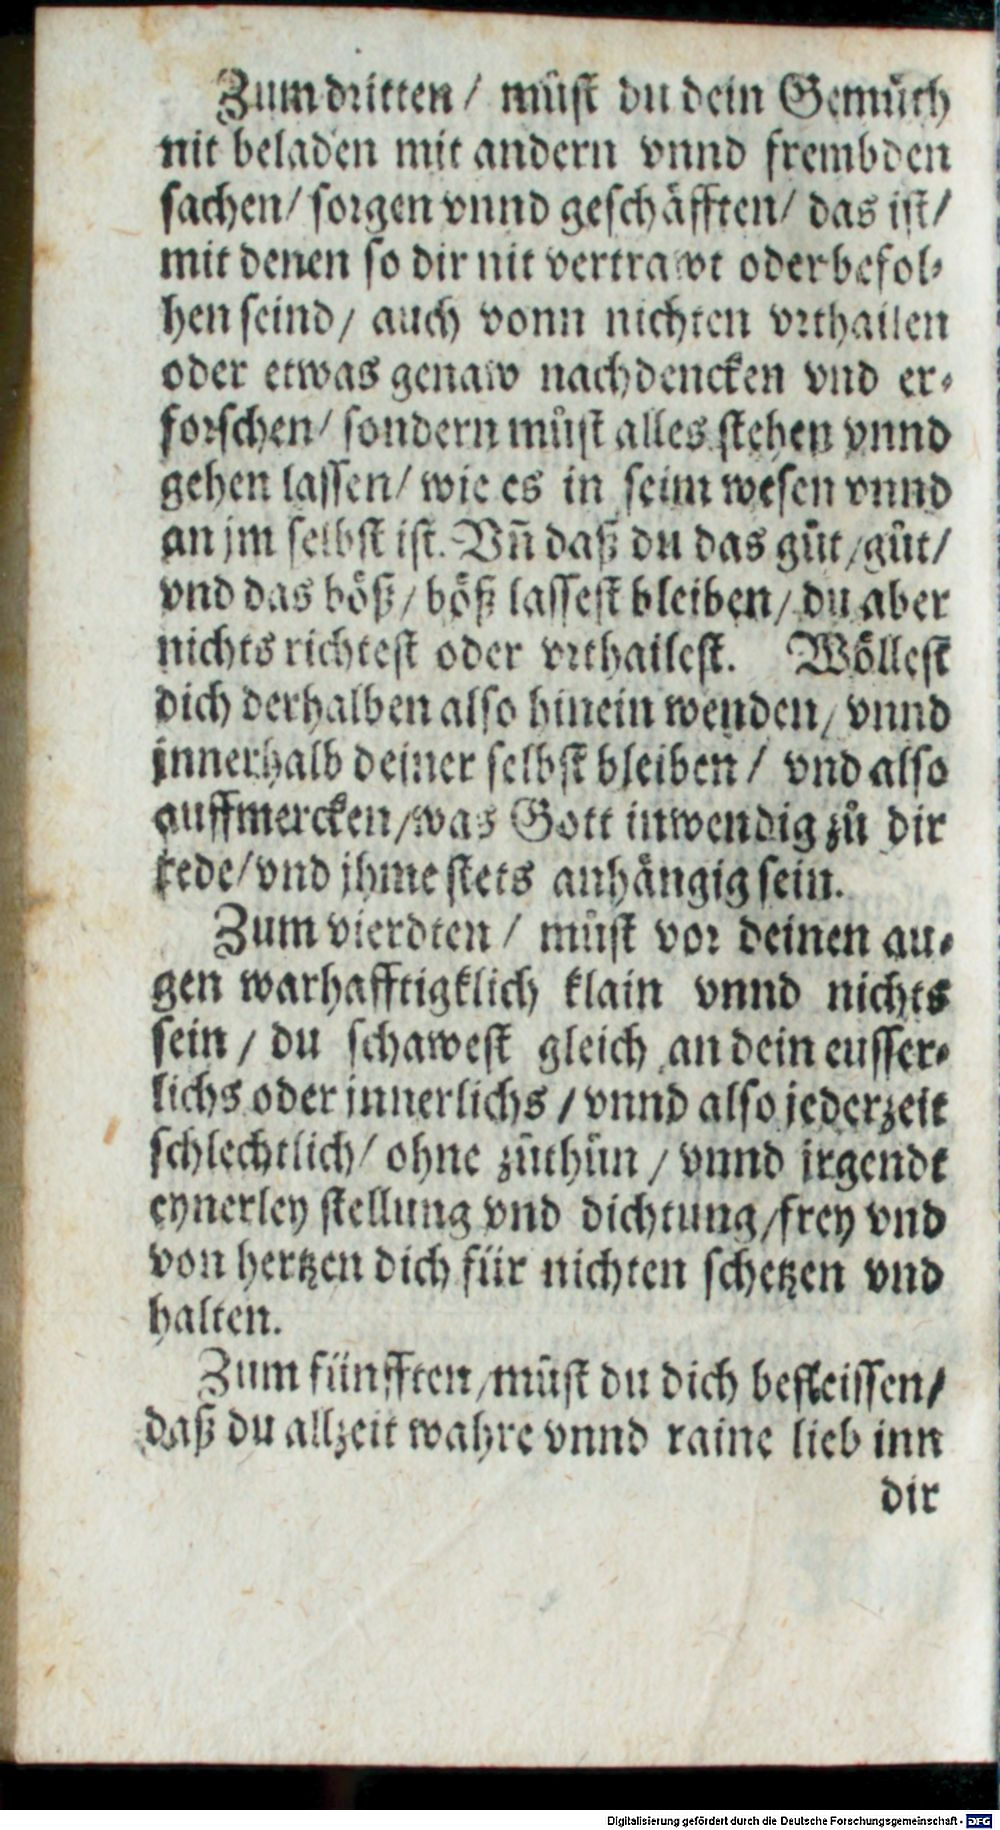 Zum dritten / můst du dein Gemüth
nit beladen mit andern vnnd frembden
sachen / sorgen vnnd geschäfften / das ist /
mit denen so dir nit vertrawt oder befol-
hen seind / auch vonn nichten vrthailen
oder etwas genaw nachdencken vnd er-
forschen / sondern můst alles stehen vnnd
gehen lassen / wie es in seim wesen vnnd
an jm selbst ist. Vñ daß du das gůt / gůt /
vnd das böß / böß lassest bleiben / du aber
nichts richtest oder vrthailest. Wöllest
dich derhalben also hinein wenden / vnnd
innerhalb deiner selbst bleiben / vnd also
auffmercken / was Gott inwendig zů dir
rede / vnd jhme stets anhängig sein.
Zum vierdten / můst vor deinen au-
gen warhafftigklich klain vnnd nichts
sein / du schawest gleich an dein eusser-
lichs oder innerlichs / vnnd also jederzeit
schlechtlich / ohne zůthůn / vnnd irgendt
eynerley stellung vnd dichtung / frey vnd
von hertzen dich für nichten schetzen vnd
halten.
Zum fünfften / můst du dich befleissen /
daß du allzeit wahre vnnd raine lieb inn
dir
Digitalisierung gefördert durch die Deutsche Forschungsgemeinschaft - DFG